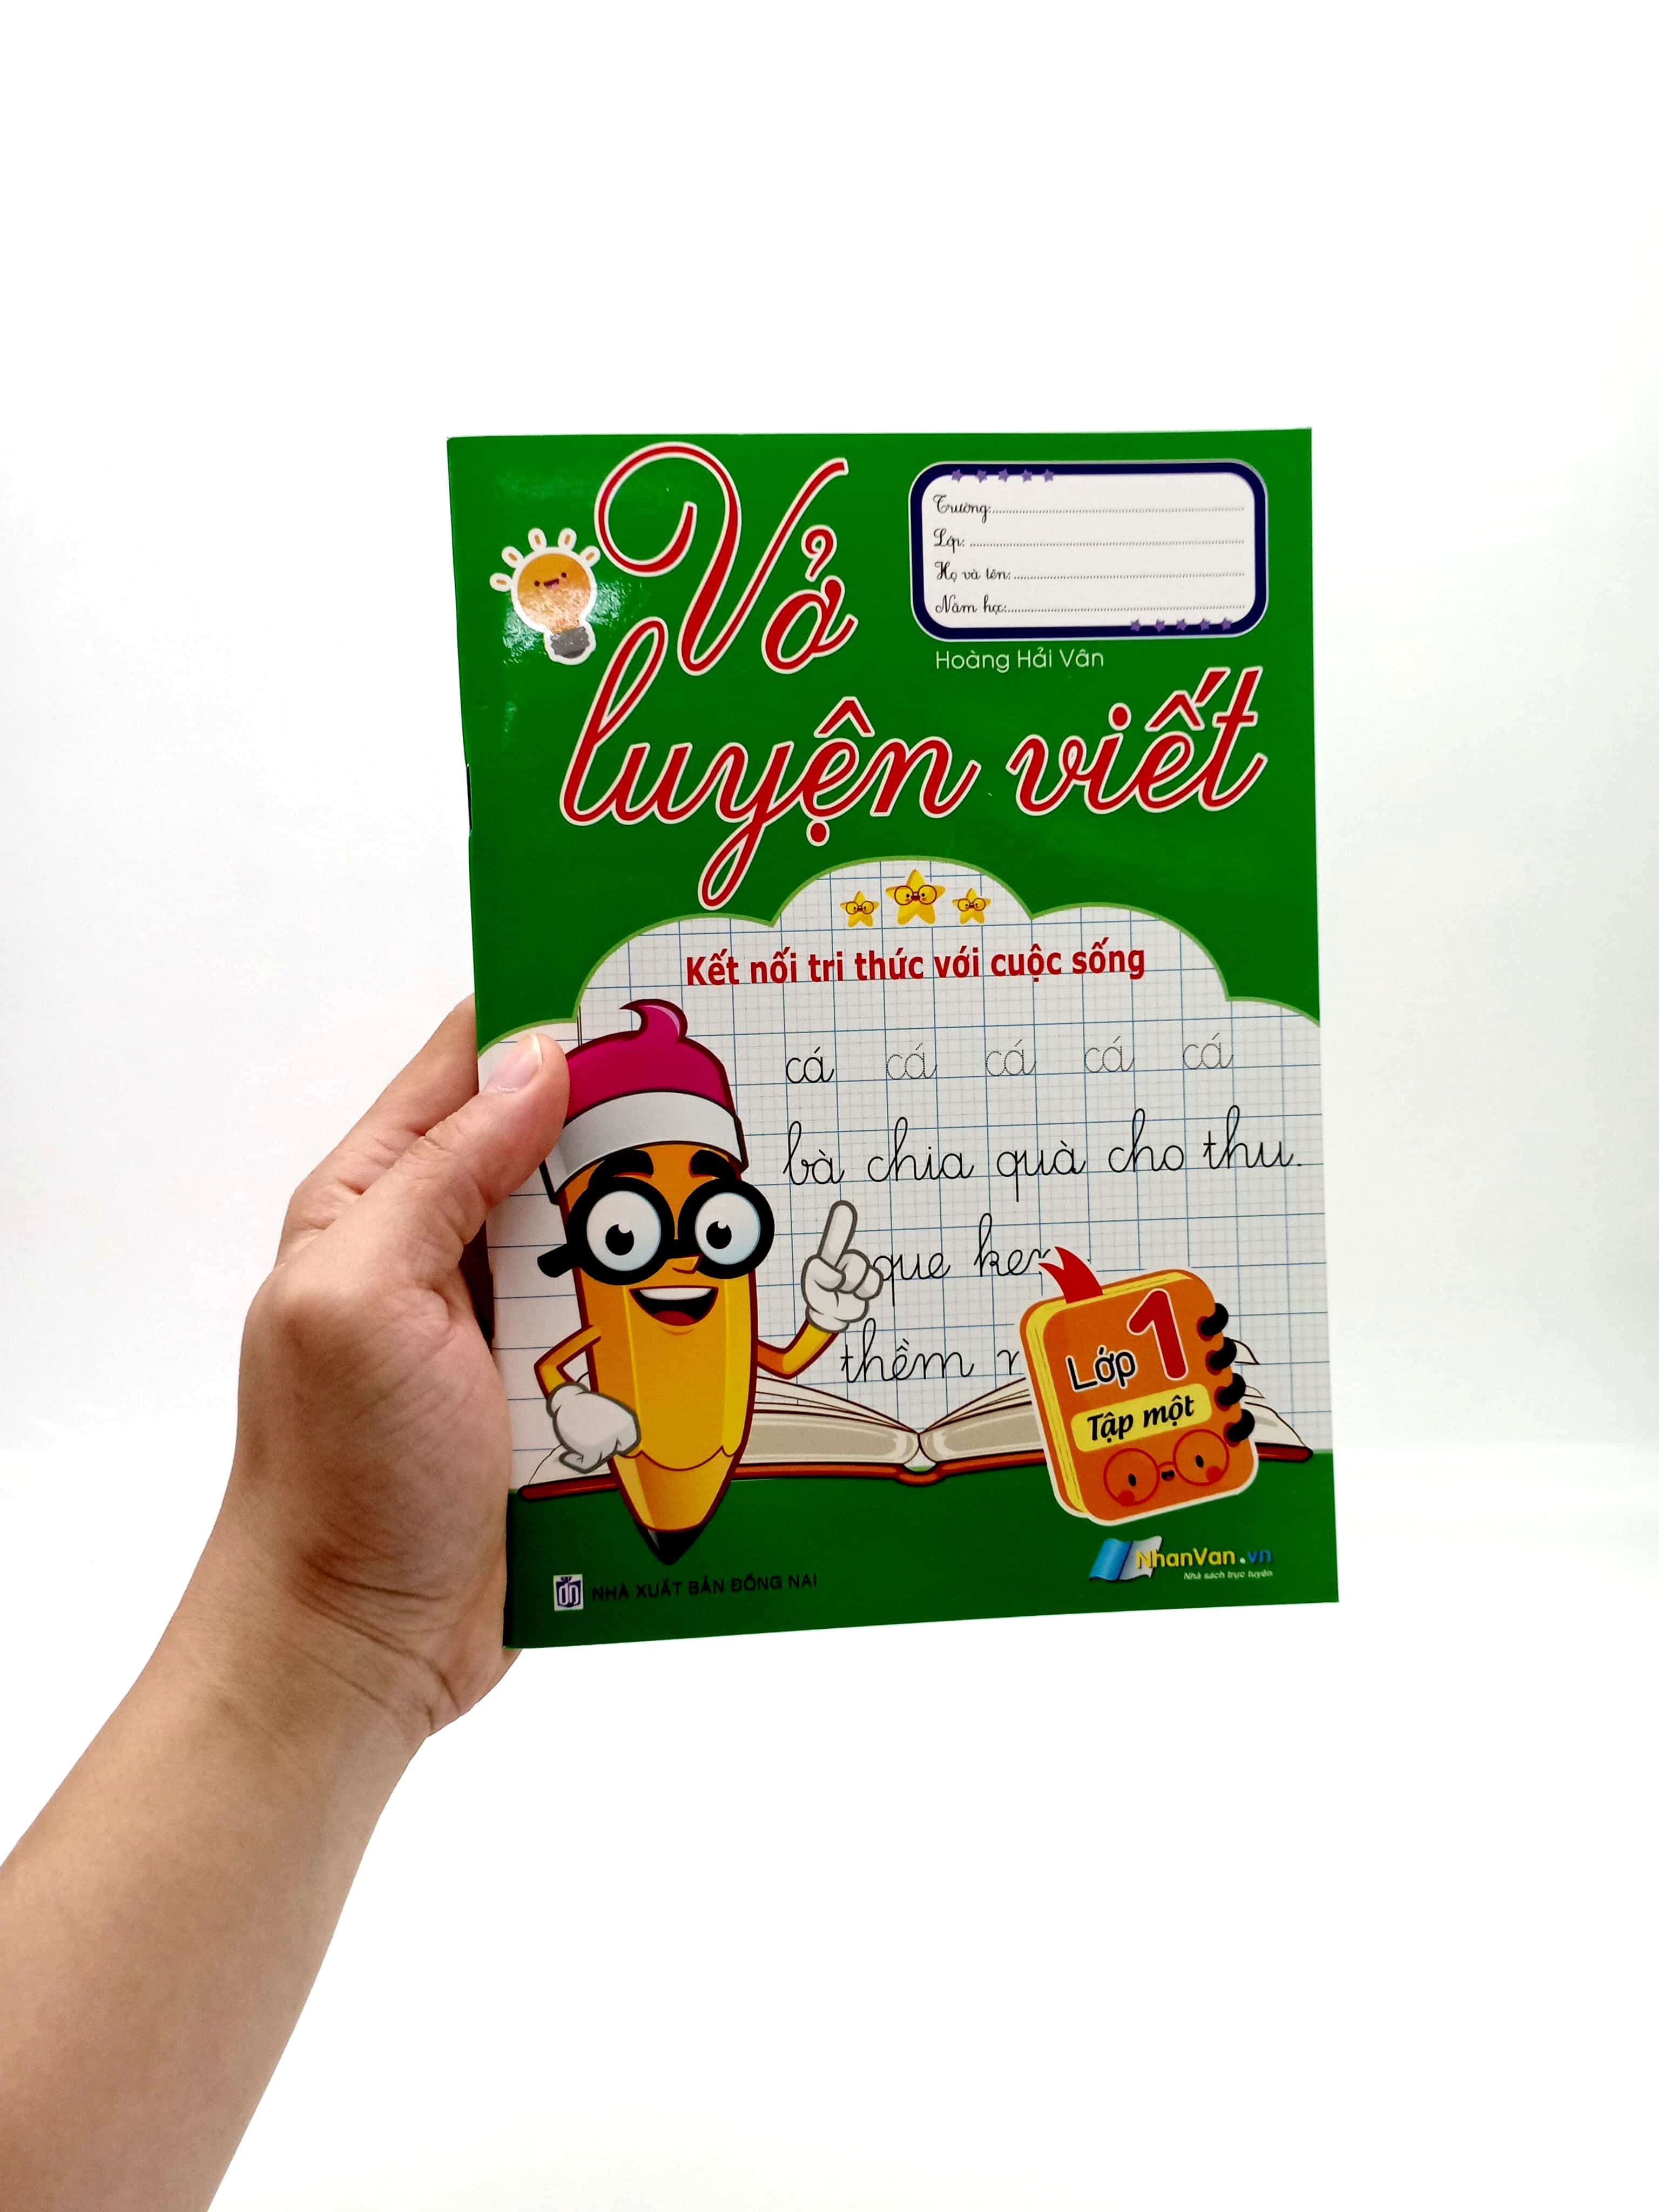 Vở
luyện viết
Trường:
Lớp:
Họ và tên:
Năm học:
Hoàng Hải Vân
Kết nối tri thức với cuộc sống
cá cá cá cá cá
bà chia quà cho thu.
que
thềm
Lớp 1
Tập một
NHÀ XUẤT BẢN ĐỒNG NAI
NhanVan.vn
Nhà sách trực tuyến